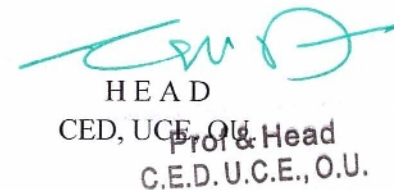 H E A D
CED, UCE, OU
Prof & Head
C.E.D. U.C.E., O.U.